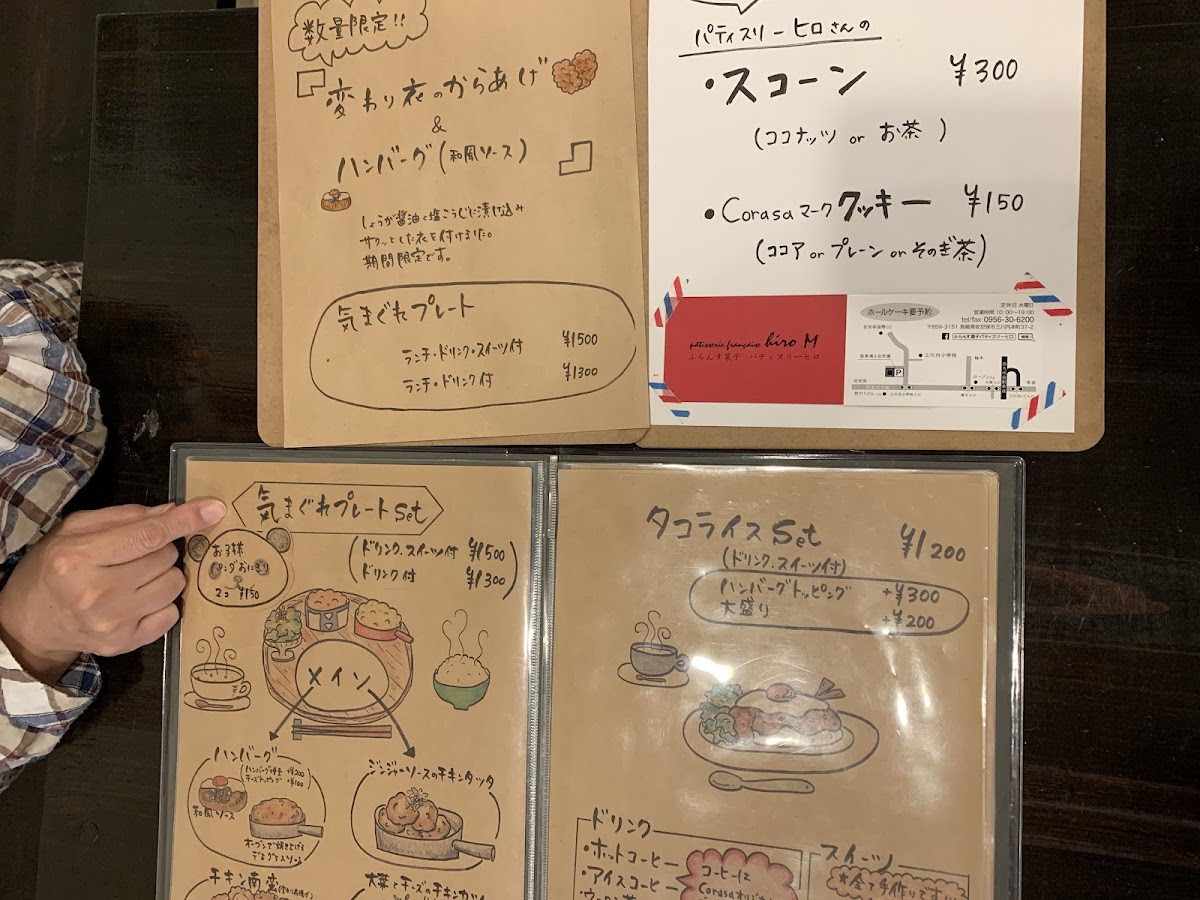 数量限定!!
変わり衣のからあげ
&
ハンバーグ(和風ソース)
しょうが醤油と塩こうじに漬け込み
サクッとした衣を付けました。
期間限定です。
気まぐれプレート
ランチ・ドリンク・スイーツ付 ¥1500
ランチ・ドリンク付 ¥1300
パティスリーヒロさんの
・スコーン ¥300
(ココナッツ or お茶)
・Corasaマーククッキー ¥150
(ココア or プレーン or そのぎ茶)
pâtisserie française hiro M
ふらんす菓子 パティスリーヒロ
ホールケーキ要予約
定休日 水曜日
営業時間 10:00〜19:00
tel/fax 0956-30-6200
〒859-3151 長崎県佐世保市三川内本町37-2
ふらんす菓子パティスリーヒロ
三川内小学校
P
気まぐれプレートSet
(ドリンク、スイーツ付 ¥1500
ドリンク付 ¥1300)
お子様
パンダおにぎり
2コ ¥150
メイン
ハンバーグ
チーズトッピング +¥100
和風ソース
オーブンで焼き上げる
デミグラスソース
ジンジャーソースのチキンタッタ
チキン南蛮
大葉とチーズのチキンカツ
タコライスSet ¥1200
(ドリンク、スイーツ付)
ハンバーグトッピング +¥300
大盛り +¥200
ドリンク
・ホットコーヒー
・アイスコーヒー
・ウーロン茶
コーヒーは
スイーツ
*全て手作りです!!